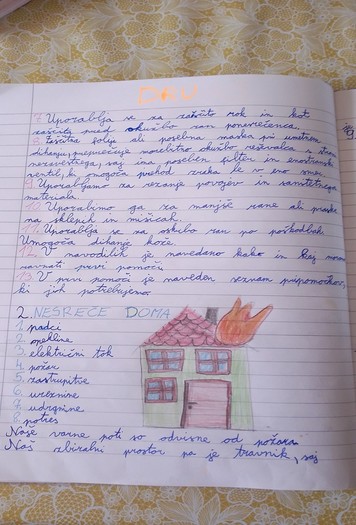 7. Uporablja se za zaščito rok in kot
zaščita pred okužbo ran ponesrečenca.
8. Zaščitna folija ali posebna maska pri umetnem
dihanju, preprečuje morebitno okužbo reševalca
nezavestnega, saj ima poseben filter in enostranski
ventil, ki omogoča prehod zraka le v eno smer.
9. Uporabljamo za rezanje povojev in sanitetnega
materiala.
10. Uporabimo ga za manjše rane ali praske
na sklepih in mišicah.
11. Uporablja se za oskrbo ran po poškodbah.
Omogoča dihanje kože.
12. V navodilih je navedeno kako in kaj
ravnati prvi pomoči.
13. V prvi pomoči je naveden seznam pripomočkov,
ki jih potrebujemo.
2. NESREČE DOMA
1. padci
2. opekline
3. električni tok
4. požar
5. zastrupitve
6. vreznine
7. udrgnine
8. potres
Naše varne poti so odvisne od požara.
Naš zbiralni prostor pa je travnik, saj